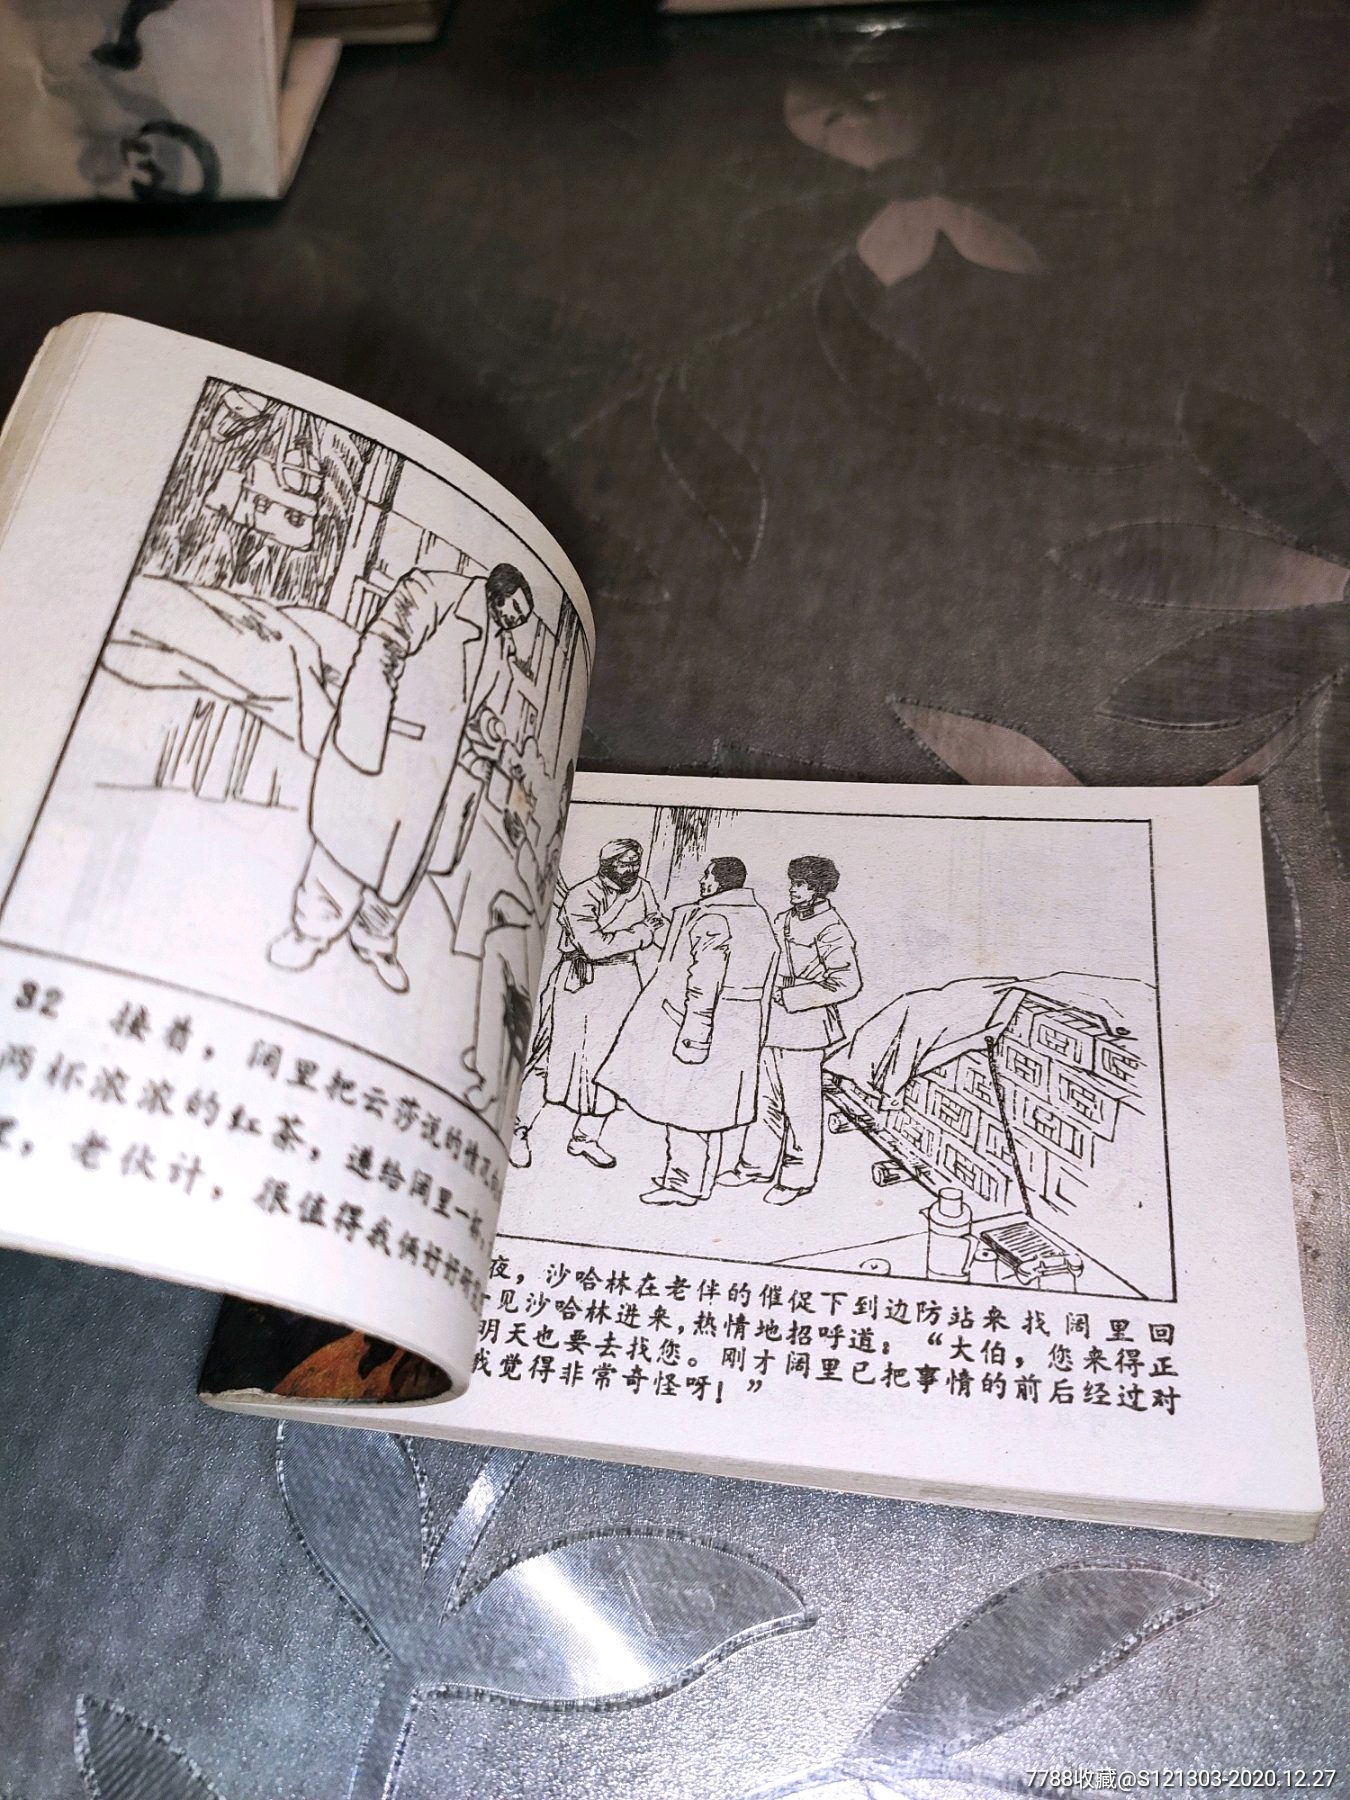 32 接着，阔里把云莎说的情况
两杯浓浓的红茶，递给阔里一杯，
里，老伙计，很值得我俩好好研究
夜，沙哈林在老伴的催促下到边防站来找阔里回
见沙哈林进来，热情地招呼道：“大伯，您来得正
明天也要去找您。刚才阔里已把事情的前后经过对
我觉得非常奇怪呀！”
7788收藏@S121303-2020.12.27